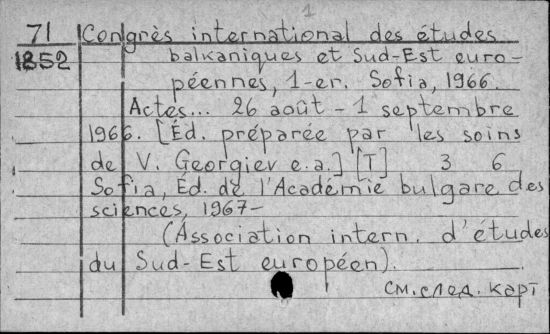 1
71 Congrès international des études
1352 balkaniques et Sud-Est euro-
péennes, 1-er. Sofia, 1966.
Actes... 26 août - 1 septembre
1966. [Éd. préparée par les soins
de V. Georgiev e.a.] [T] 3 6
Sofia, Éd. de l'Académie bulgare des
sciences, 1967-
(Association intern. d'études
du Sud-Est européen).
см.след.карт